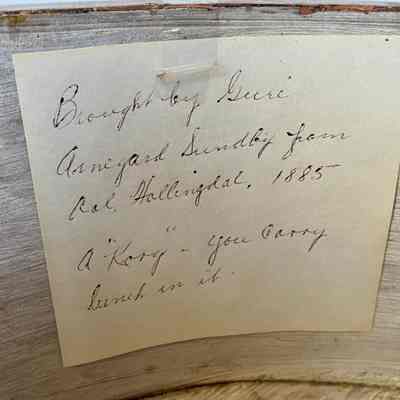 Brought by Guri
Arnegard Sundby from
Aal, Hallingdal, 1885
A "Korg" - you carry
lunch in it.